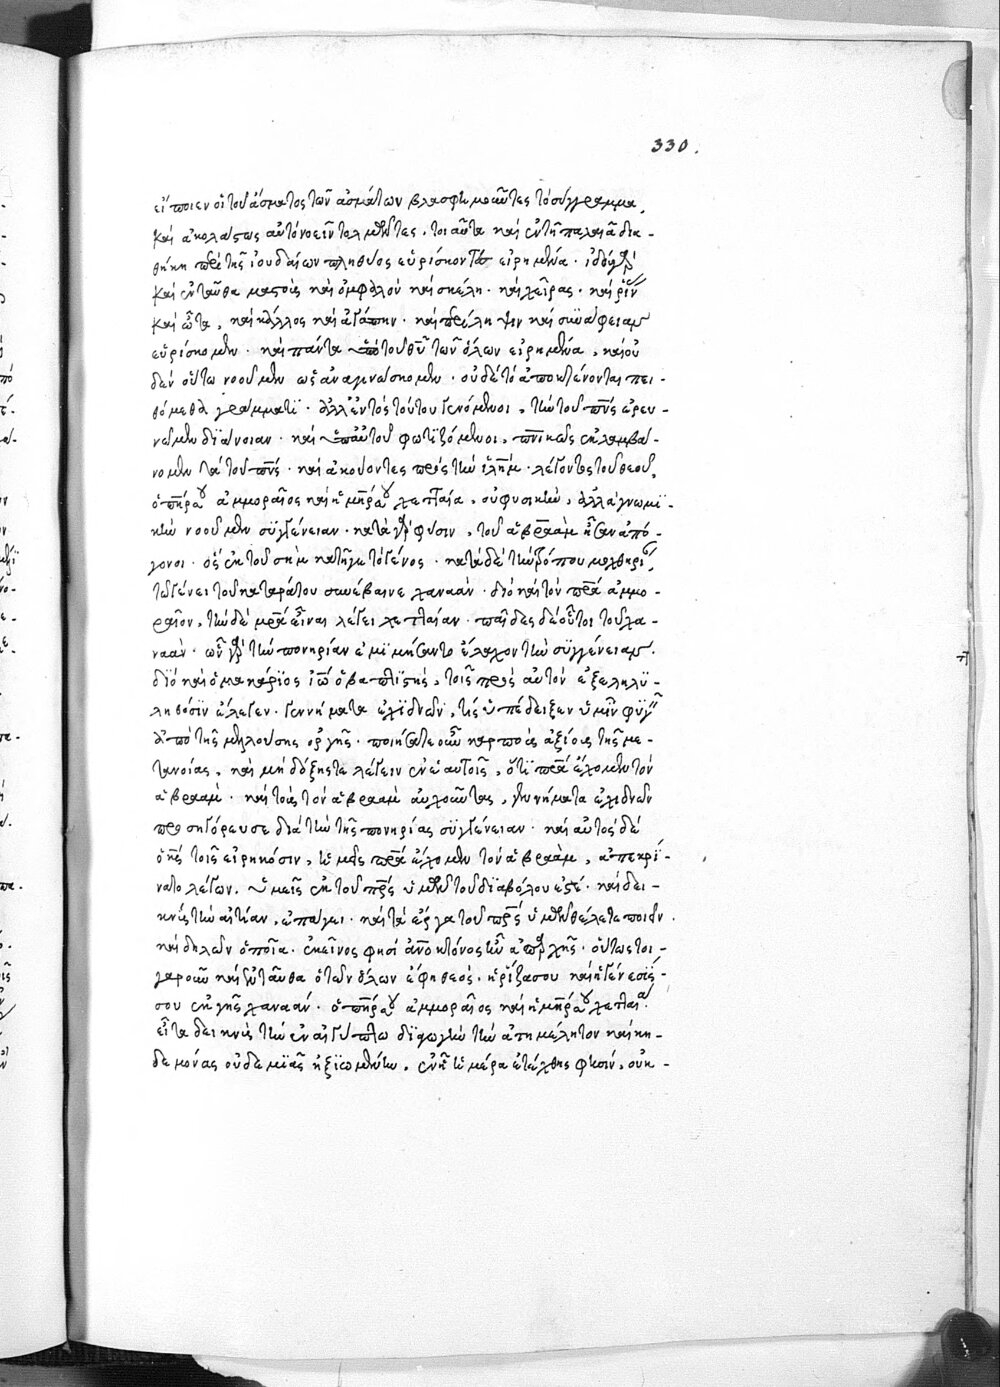 330.
εἴποιεν οἱ τοῦ ἄσματος τῶν ἀσμάτων βλασφημοῦντες τὸ σύγγραμμα,
καὶ ἀκολάστως αὐτὸ νοεῖν τολμῶντες. τοιαῦτα καὶ ἐν τῇ παλαιᾷ δια-
θήκῃ περὶ τῆς ἰουδαίων πληθύος εὑρίσκοντες εἰρημένα. ἰδοὺ γὰρ
καὶ ἐνταῦθα μαστοὺς καὶ ὀμφαλὸν καὶ σκέλη. καὶ χεῖρας. καὶ ῥῖνα
καὶ ὦτα, καὶ κάλλος καὶ ἀγάπην. καὶ περίληψιν καὶ συνάφειαν
εὑρίσκομεν. καὶ πάντα ἀπὸ τοῦ θῦ τῶν ὅλων εἰρημένα, καὶ οὐ
δὲν οὕτω νοοῦμεν ὡς ἀναγινώσκομεν. οὐδὲ τῷ ἀποκτένοντι πει-
θόμεθα γράμματι. ἀλλ' ἐντὸς τούτου γενόμενοι, τὴν τοῦ πνς ἐρευ-
νῶμεν διάνοιαν. καὶ ὑπ' αὐτοῦ φωτιζόμενοι, πνικῶς ἐκλαμβά-
νομεν τὰ τοῦ πνς. καὶ ἀκούοντες πρὸς τὴν ἱλημ. λέγοντος τοῦ θεοῦ,
ὁ πηρ σου ἀμμοραῖος καὶ ἡ μηρ σου χετταία, οὐ φυσικὴν, ἀλλὰ γνωμι-
κὴν νοοῦμεν συγγένειαν. κατὰ γὰρ φύσιν, τοῦ ἀβραὰμ ἦσαν ἀπό-
γονοι. ὃς ἐκ τοῦ σὴμ κατῆγε τὸ γένος. κατὰ δὲ τὴν τρόπου μοχθηρίαν
τῷ γένει τοῦ καταράτου συνέβαινε χαναάν. διὸ καὶ τὸν πρα ἀμμο-
ραῖον, τὴν δὲ μρα εἶναι λέγει χετταίαν. παῖδες δὲ οὗτοι τοῦ χα-
ναάν. ὧν γὰρ τὴν πονηρίαν ἐμιμήσαντο ἔλαχον τὴν συγγένειαν.
διὸ καὶ ὁ μακάριος ἰω ὁ βαπτιστὴς, τοῖς πρὸς αὐτὸν ἐξεληλυ-
θόσιν ἔλεγεν. γεννήματα ἐχιδνῶν, τίς ὑπέδειξεν ὑμῖν φυγεῖν
ἀπὸ τῆς μελλούσης ὀργῆς. ποιήσατε οὖν καρποὺς ἀξίους τῆς με-
τανοίας, καὶ μὴ δόξητε λέγειν ἐν ἑαυτοῖς, ὅτι πρα ἔχομεν τὸν
ἀβραάμ. καὶ τοὺς τὸν ἀβραὰμ αὐχοῦντας, γεννήματα ἐχιδνῶν
προσηγόρευσε διὰ τὴν τῆς πονηρίας συγγένειαν. καὶ αὐτὸς δὲ
ὁ κς τοῖς εἰρηκόσιν, ἡμεῖς πρα ἔχομεν τὸν ἀβραὰμ, ἀπεκρί-
νατο λέγων. ὑμεῖς ἐκ τοῦ πρς ὑμῶν τοῦ διαβόλου ἐστέ. καὶ δει-
κνὺς τὴν αἰτίαν, ἐπάγει. καὶ τὰ ἔργα τοῦ πρς ὑμῶν θέλετε ποιεῖν.
καὶ δηλῶν ὁποῖα. ἐκεῖνος φησὶ ἀνοκτόνος ἦν ἀπ' ἀρχῆς. οὕτως τοι-
γαροῦν καὶ ἐνταῦθα ὁ τῶν ὅλων ἔφη θεός. ἡ ῥίζα σου καὶ ἡ γένεσίς
σου ἐκ γῆς χαναάν. ὁ πηρ σου ἀμμοραῖος καὶ ἡ μηρ σου χετταία.
εἶτα δεικνὺς τὴν ἐν αἰγύπτω διαγωγὴν τὴν ἀτημέλητον καὶ κη-
δεμονίας οὐδεμιᾶς ἠξιωμένην. ἐν ᾗ ἡμέρα ἐτέχθης φησὶν, οὐκ